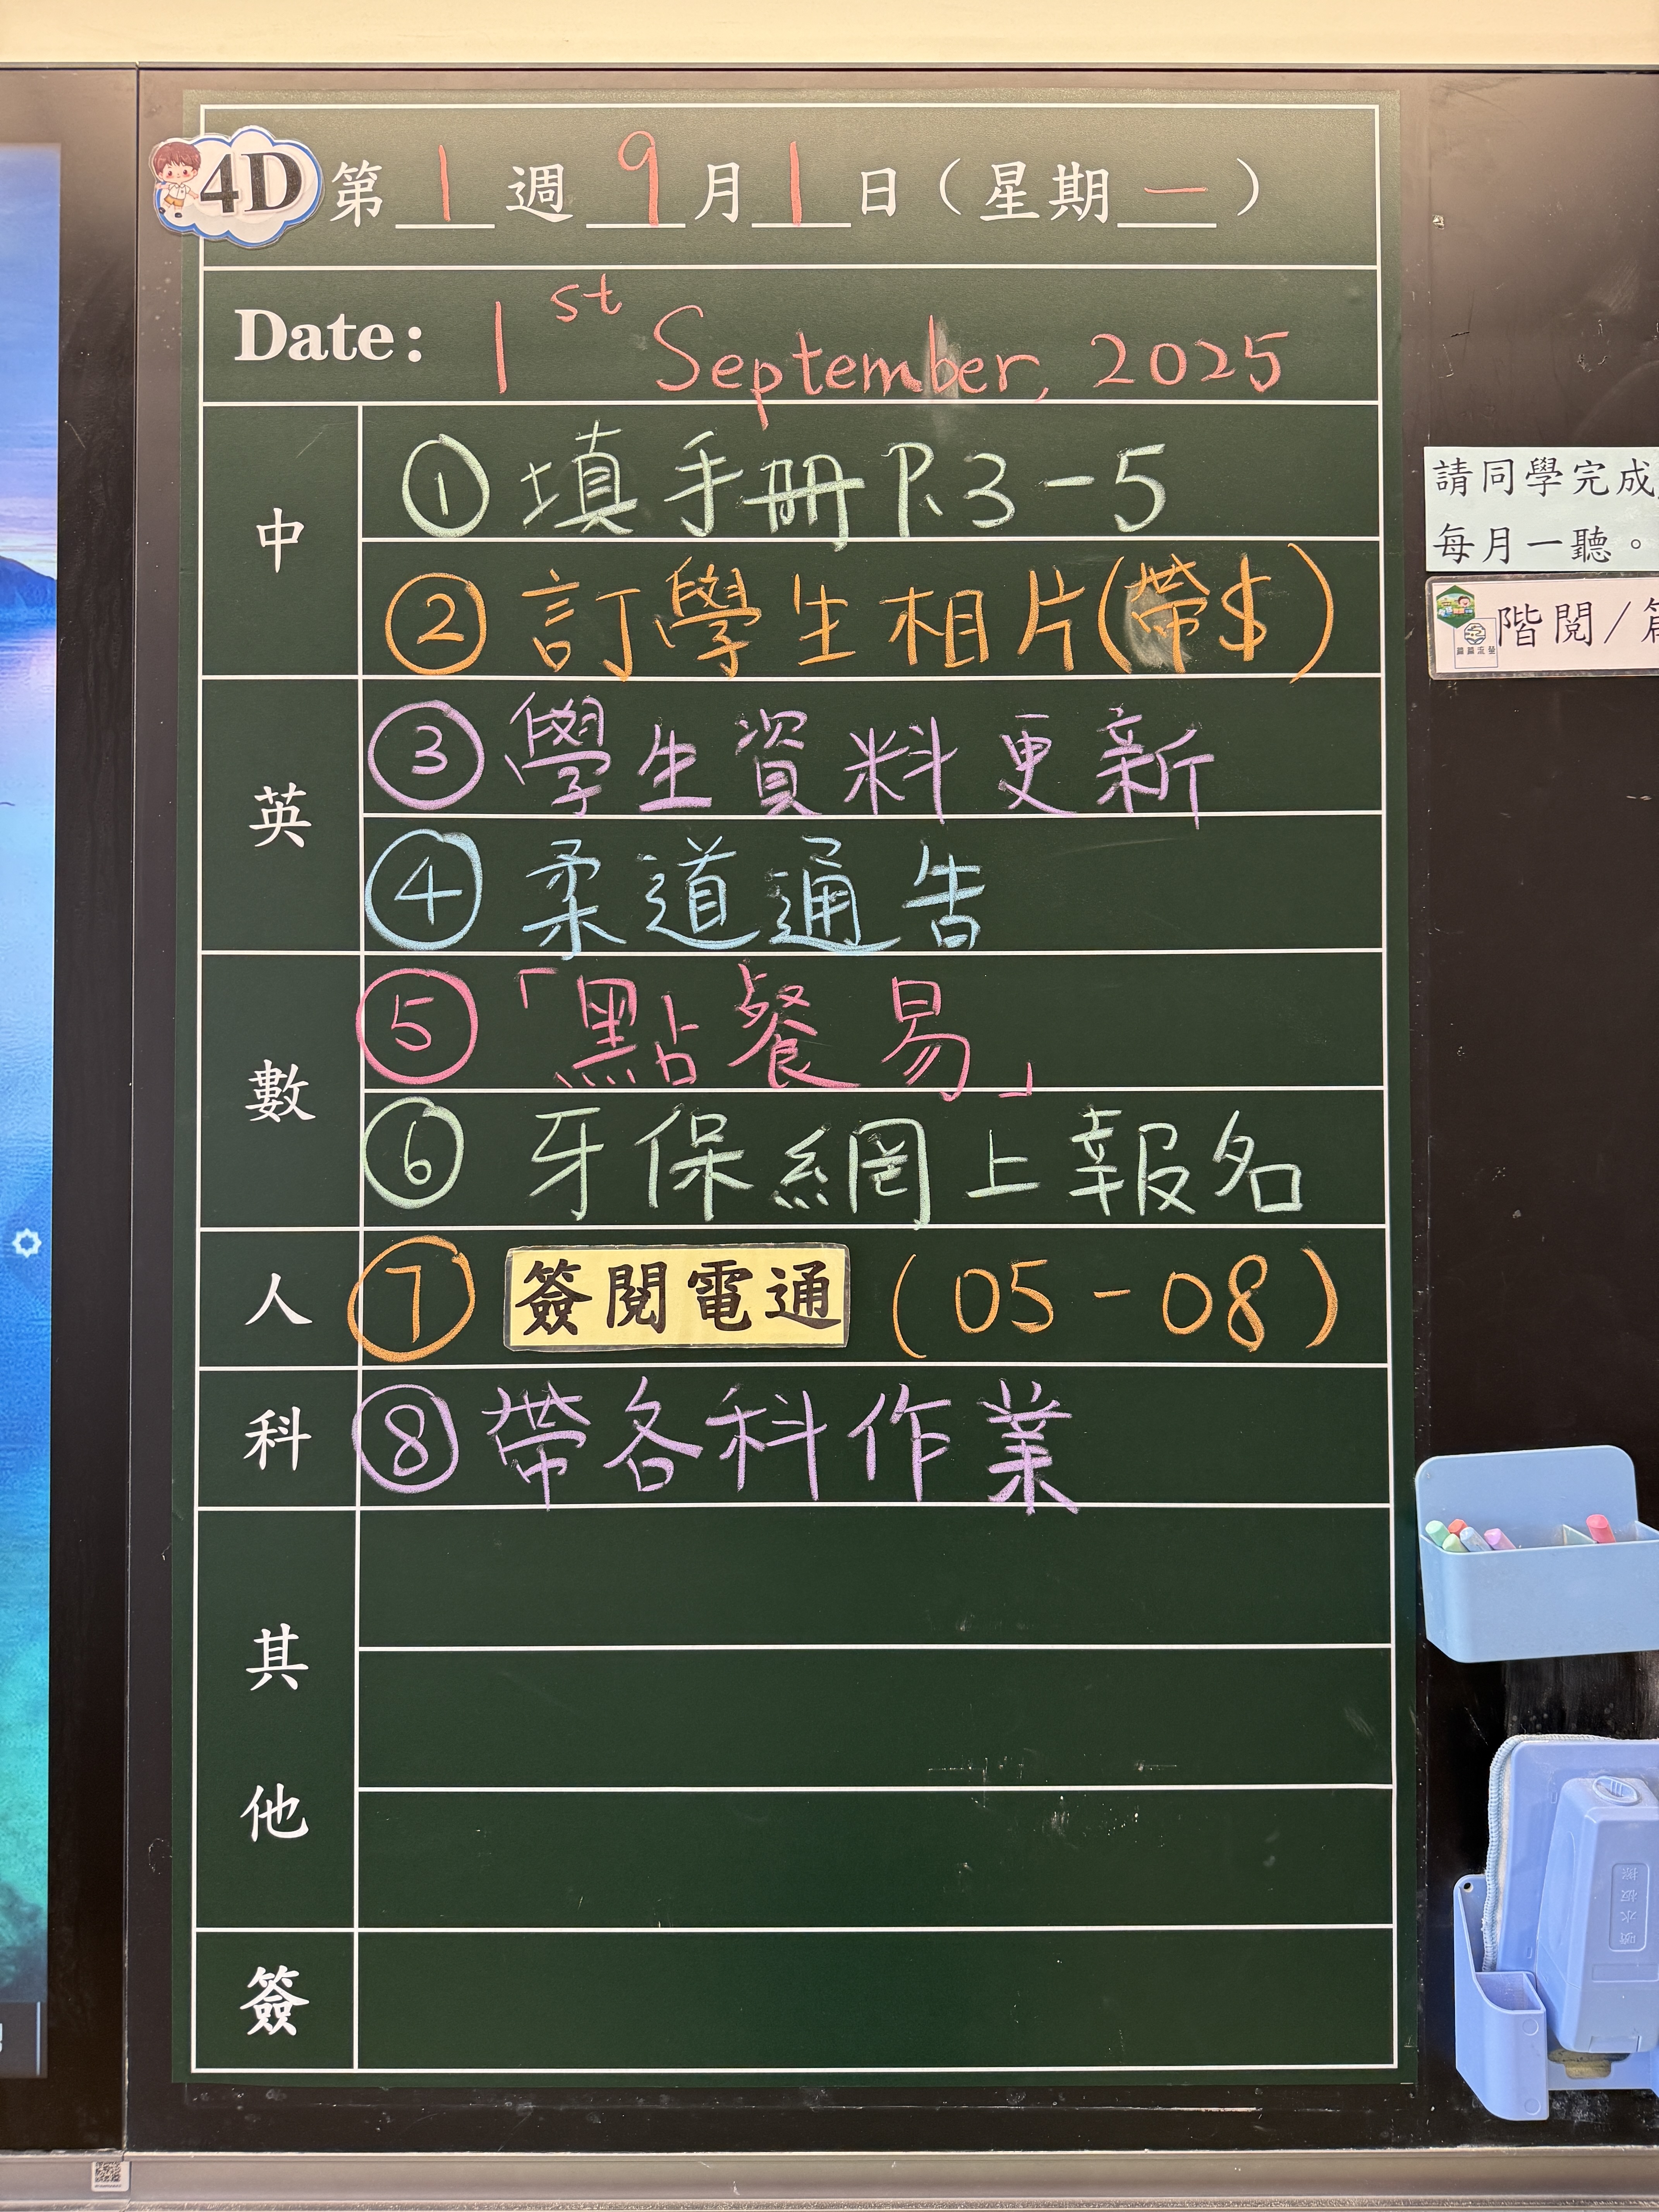 4D 第1週9月1日（星期一）
Date: 1st September, 2025
中
① 填手冊 P.3-5
② 訂學生相片(帶$)
英
③ 學生資料更新
④ 柔道通告
數
⑤「點餐易」
⑥ 牙保網上報名
人
⑦ 簽閱電通 (05-08)
科
⑧ 帶各科作業
其他
簽
請同學完成
每月一聽。
階閱/